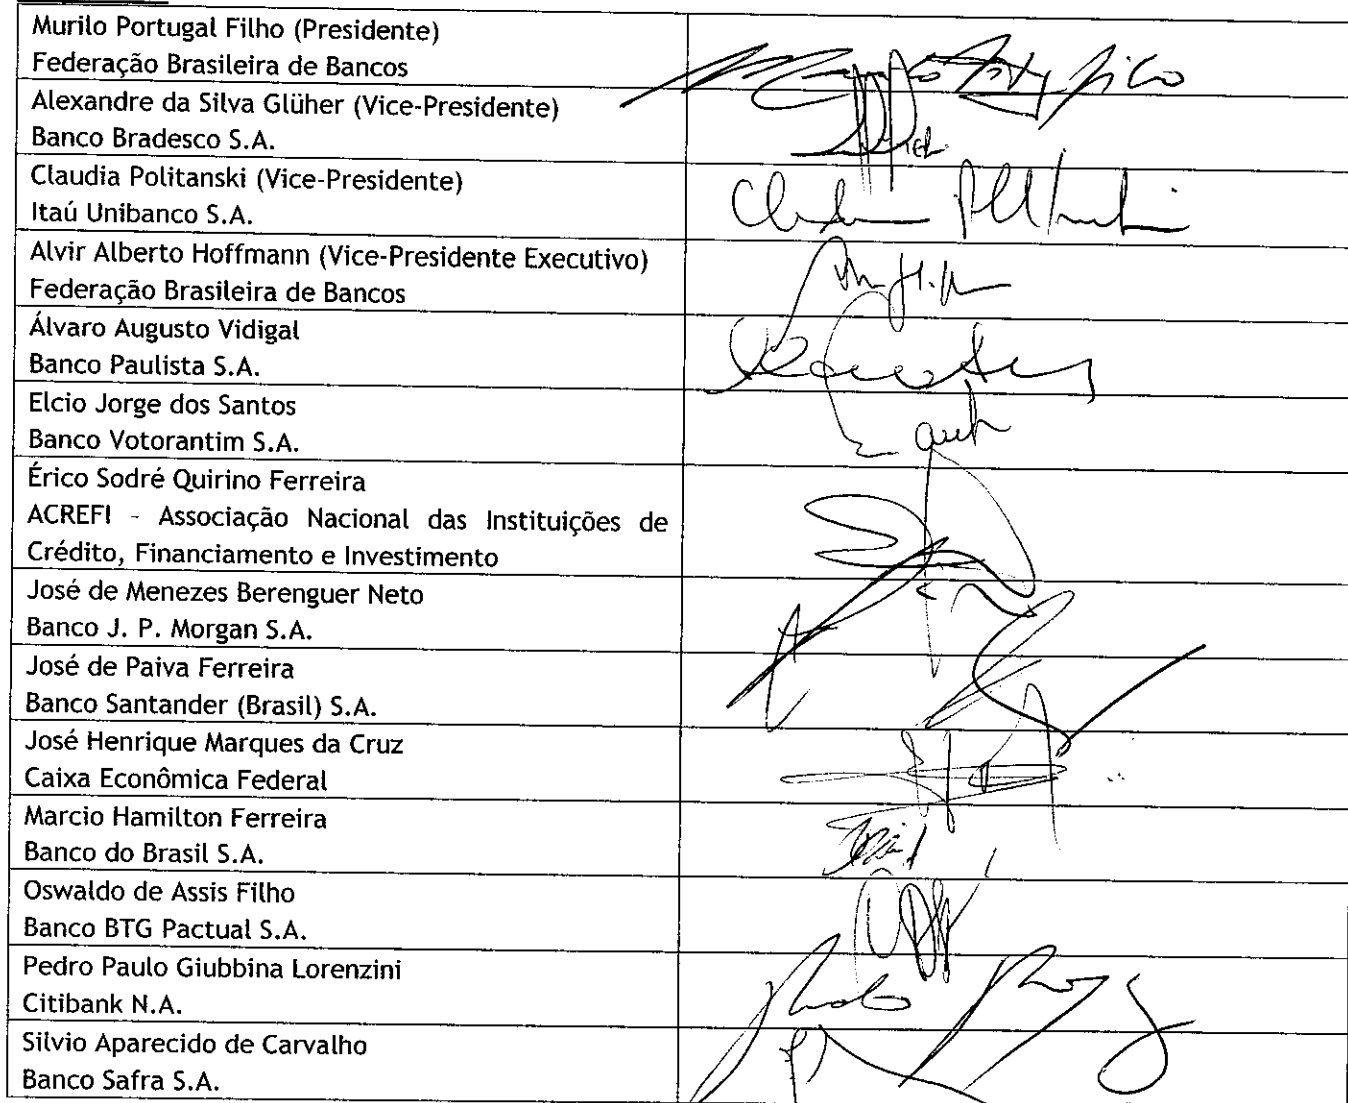 Murilo Portugal Filho (Presidente)
Federação Brasileira de Bancos
Alexandre da Silva Glüher (Vice-Presidente)
Banco Bradesco S.A.
Claudia Politanski (Vice-Presidente)
Itaú Unibanco S.A.
Alvir Alberto Hoffmann (Vice-Presidente Executivo)
Federação Brasileira de Bancos
Álvaro Augusto Vidigal
Banco Paulista S.A.
Elcio Jorge dos Santos
Banco Votorantim S.A.
Érico Sodré Quirino Ferreira
ACREFI - Associação Nacional das Instituições de
Crédito, Financiamento e Investimento
José de Menezes Berenguer Neto
Banco J. P. Morgan S.A.
José de Paiva Ferreira
Banco Santander (Brasil) S.A.
José Henrique Marques da Cruz
Caixa Econômica Federal
Marcio Hamilton Ferreira
Banco do Brasil S.A.
Oswaldo de Assis Filho
Banco BTG Pactual S.A.
Pedro Paulo Giubbina Lorenzini
Citibank N.A.
Silvio Aparecido de Carvalho
Banco Safra S.A.